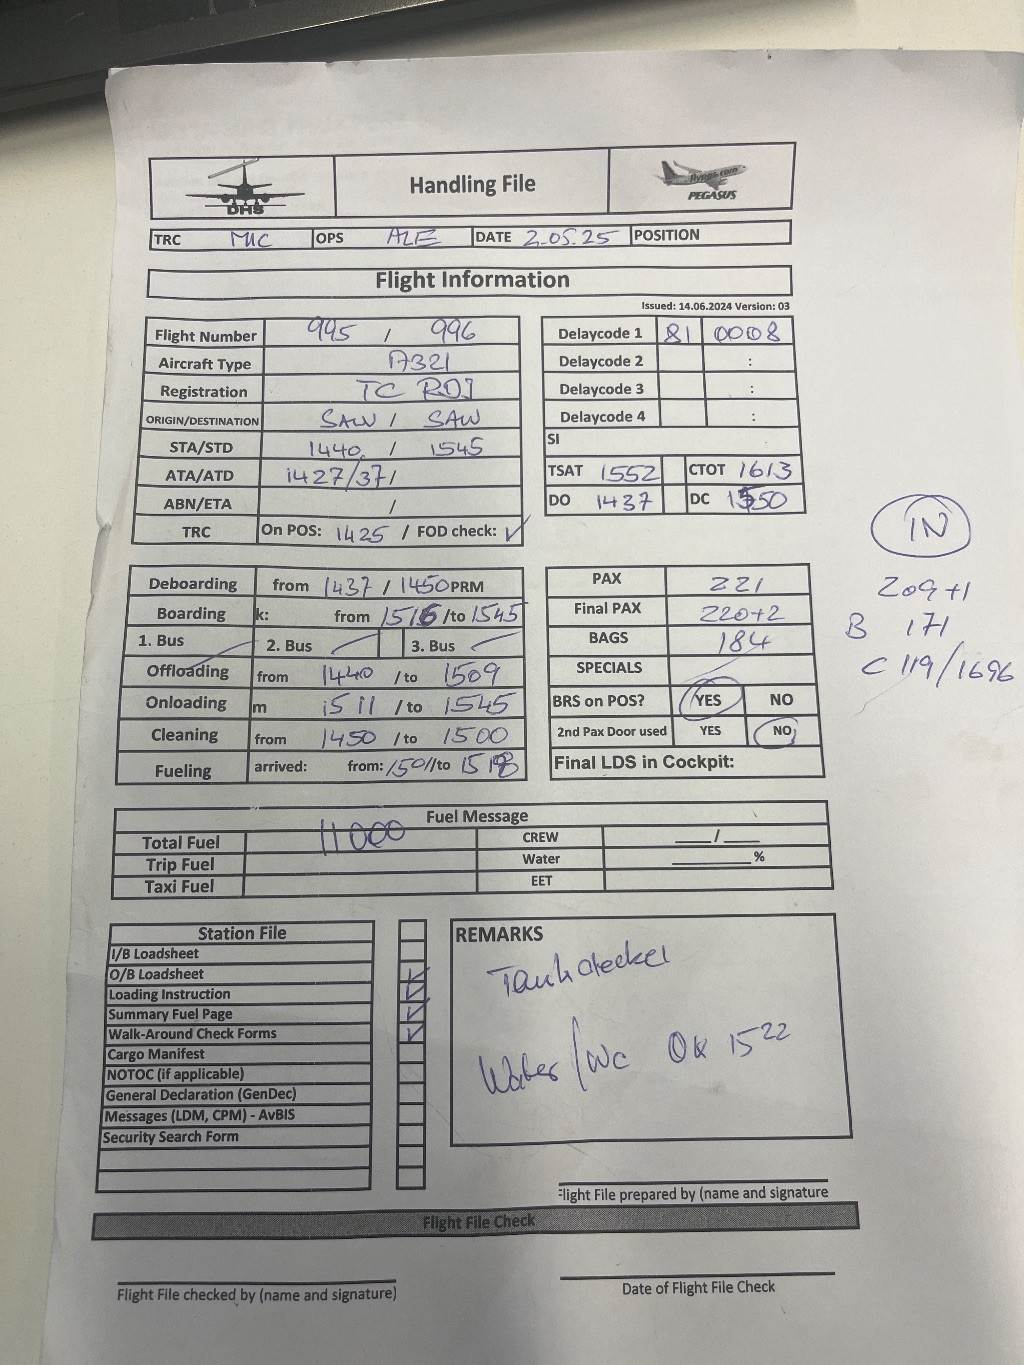 DHS
Handling File
flypgs.com
PEGASUS
TRC MIC OPS ALE DATE 2.05.25 POSITION
Flight Information
Issued: 14.06.2024 Version: 03
Flight Number 995 / 996
Aircraft Type A321
Registration TC RDJ
ORIGIN/DESTINATION SAW / SAW
STA/STD 1440 / 1545
ATA/ATD 1427/37/
ABN/ETA /
TRC On POS: 1425 / FOD check: ✓
Delaycode 1 81 0008
Delaycode 2 :
Delaycode 3 :
Delaycode 4 :
SI
TSAT 1552 CTOT 1613
DO 1437 DC 1550
IN
209+1
B 171
C 119/1696
Deboarding from 1437 / 1450 PRM
Boarding k: from 1516 /to 1545
1. Bus 2. Bus 3. Bus
Offloading from 1440 /to 1509
Onloading m 1511 /to 1545
Cleaning from 1450 /to 1500
Fueling arrived: from: 1501/to 1518
PAX 221
Final PAX 220+2
BAGS 184
SPECIALS
BRS on POS? YES NO
2nd Pax Door used YES NO
Final LDS in Cockpit:
Fuel Message
Total Fuel 11000 CREW ___/___
Trip Fuel Water ______%
Taxi Fuel EET
Station File
I/B Loadsheet
O/B Loadsheet ✓
Loading Instruction ✓
Summary Fuel Page ✓
Walk-Around Check Forms ✓
Cargo Manifest
NOTOC (if applicable)
General Declaration (GenDec)
Messages (LDM, CPM) - AvBIS
Security Search Form
REMARKS
Tankdeckel
Water/WC OK 1522
Flight File prepared by (name and signature
Flight File Check
Flight File checked by (name and signature)
Date of Flight File Check